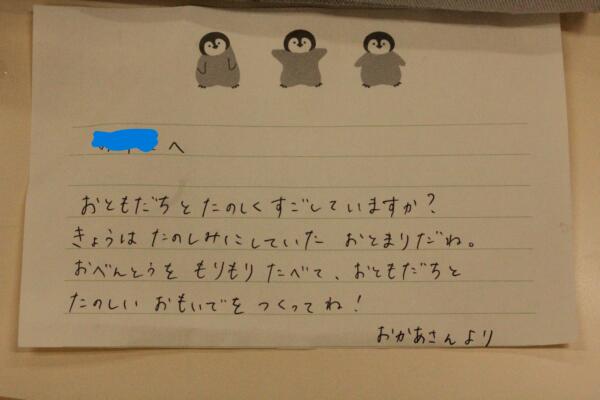 へ
おともだちとたのしくすごしていますか?
きょうは たのしみにしていた おとまりだね。
おべんとうを もりもり たべて、おともだちと
たのしい おもいでを つくってね!
おかあさんより